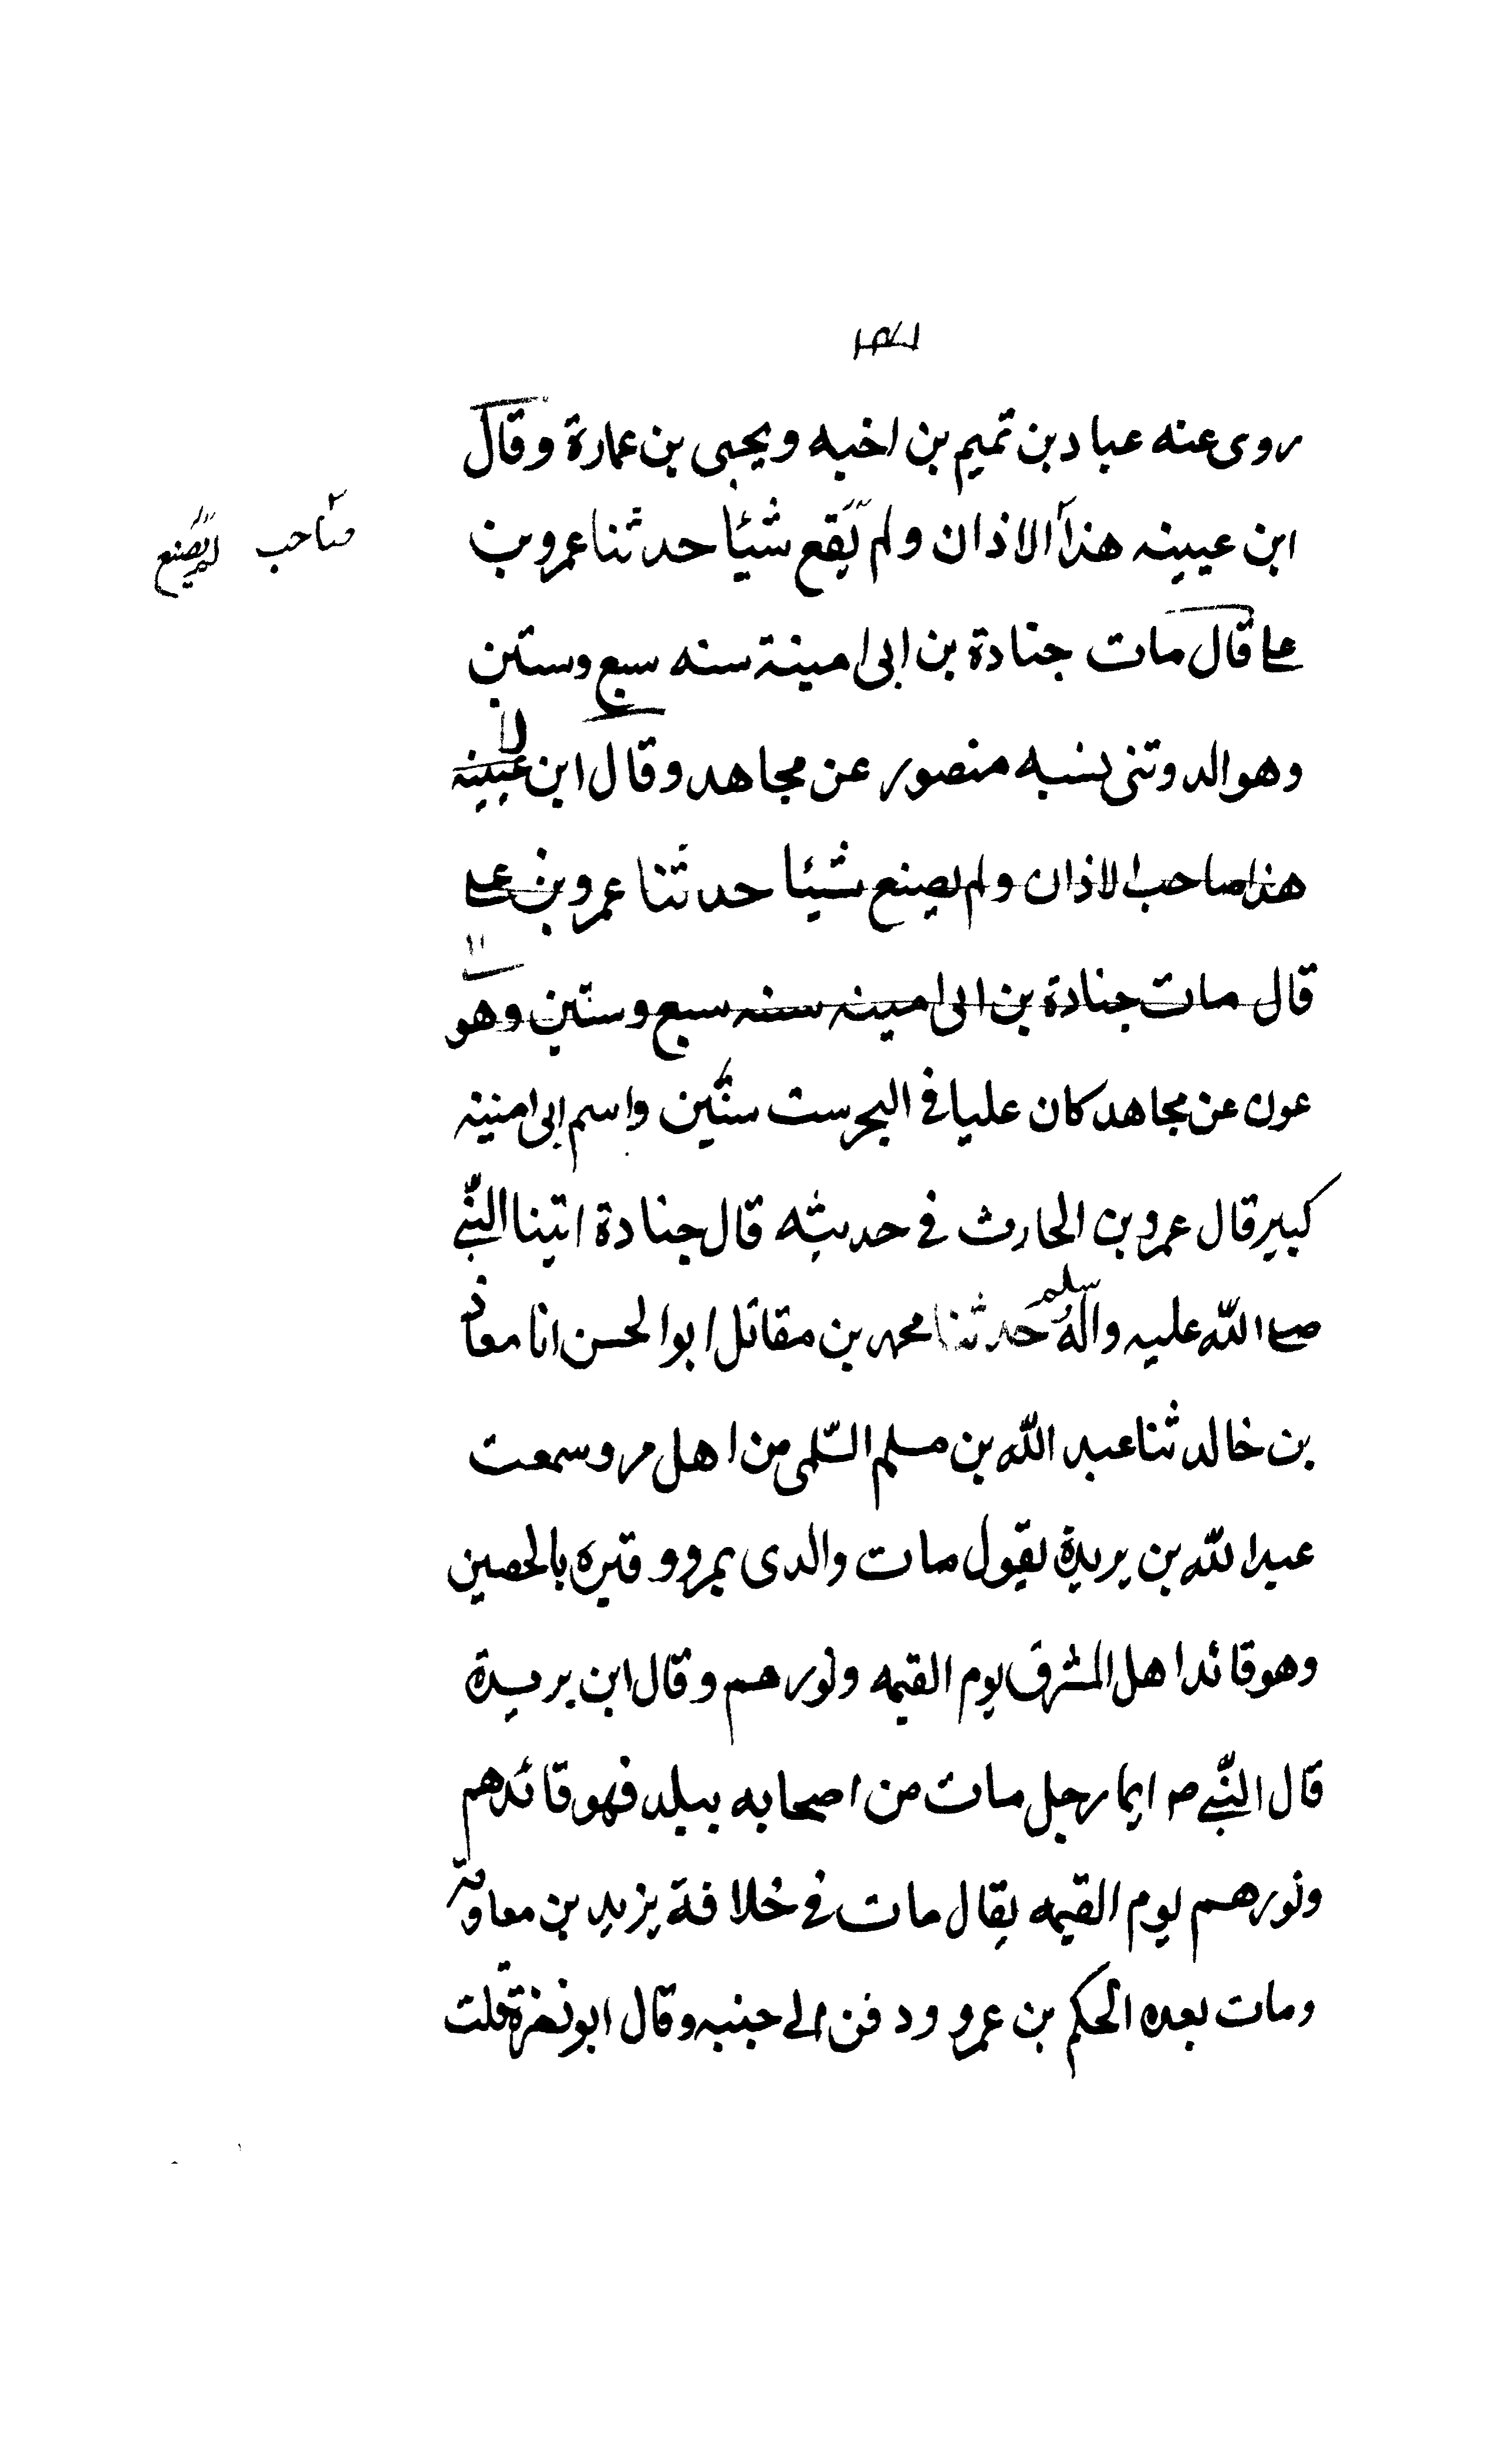 روى عنه عباد بن تميم بن اخيه ويحيى بن عمارة وقال
ابن عيينه هذا الاذان ولم يقع شيئا حدثنا عمرو بن
صاحب يصنع
على قال مات جنادة بن ابى امينة سنه سبع وستين
وهو الدوتنى نسبه منصور عن مجاهد وقال ابن عيينه
هذا صاحب الاذان ولم يصنع شيئا حدثنا عمرو بن على
قال مات جنادة بن ابى امينه سنه سبع وستين وهو
عون عن مجاهد كان عليا في البحر ست ستين واسم ابى امنية
كبير قال عمرو بن الحارث في حديثه قال جنادة اتينا النبي
صلى الله عليه واله سلم حدثنا محمد بن مقاتل ابو الحسن انا معاذ
بن خالد ثنا عبد الله بن مسلم السلمى من اهل مرو سمعت
عبد الله بن بريدة يقول مات والدى بمرو وقبره بالحصين
وهو قائد اهل المشرق يوم القيمه ونورهم وقال ابن بريدة
قال النبي ص ايما رجل مات من اصحابه ببلد فهو قائدهم
ونورهم يوم القيمه يقال مات في خلافة يزيد بن معاوية
ومات بعده الحكم بن عمرو ودفن الى جنبه وقال ابو نضرة قلت